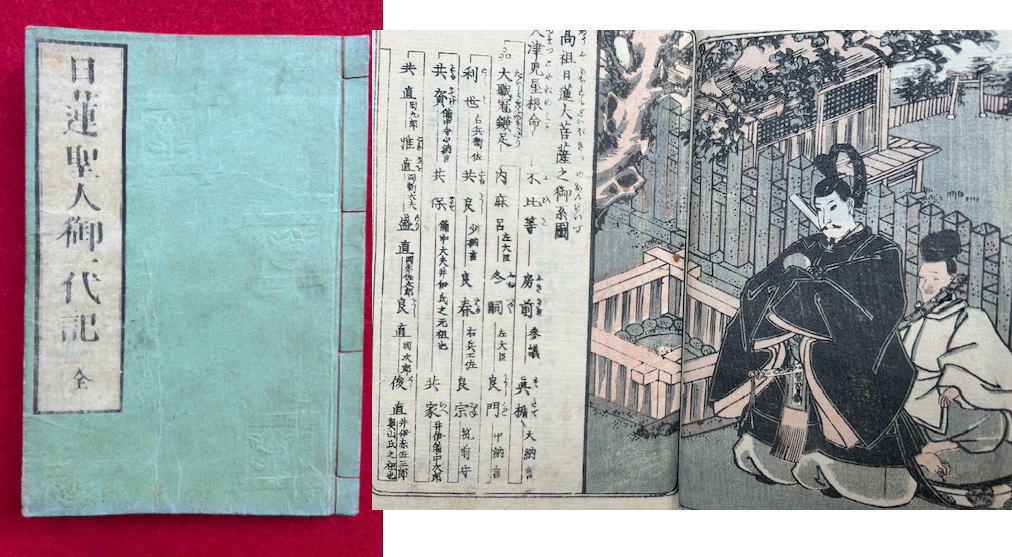 日蓮聖人御一代記 全
高祖日蓮大菩薩之御系圖
天津児屋根命 不比等 房前 参議 真楯 大納言
大職冠鎌足 内麻呂 左大臣 冬嗣 左大臣 良門 中納言
利世 右兵衛佐 共良 少納言 良春 右兵工佐 良宗 筑前守
共資 備中守少納言 共保 備中大夫井伊氏之元祖也 共家 井伊備中次郎
共直 同九郎 惟直 同新大夫 盛直 同赤佐太郎 良直 同次郎 俊直 井伊赤佐三郎 奥山氏之祖也